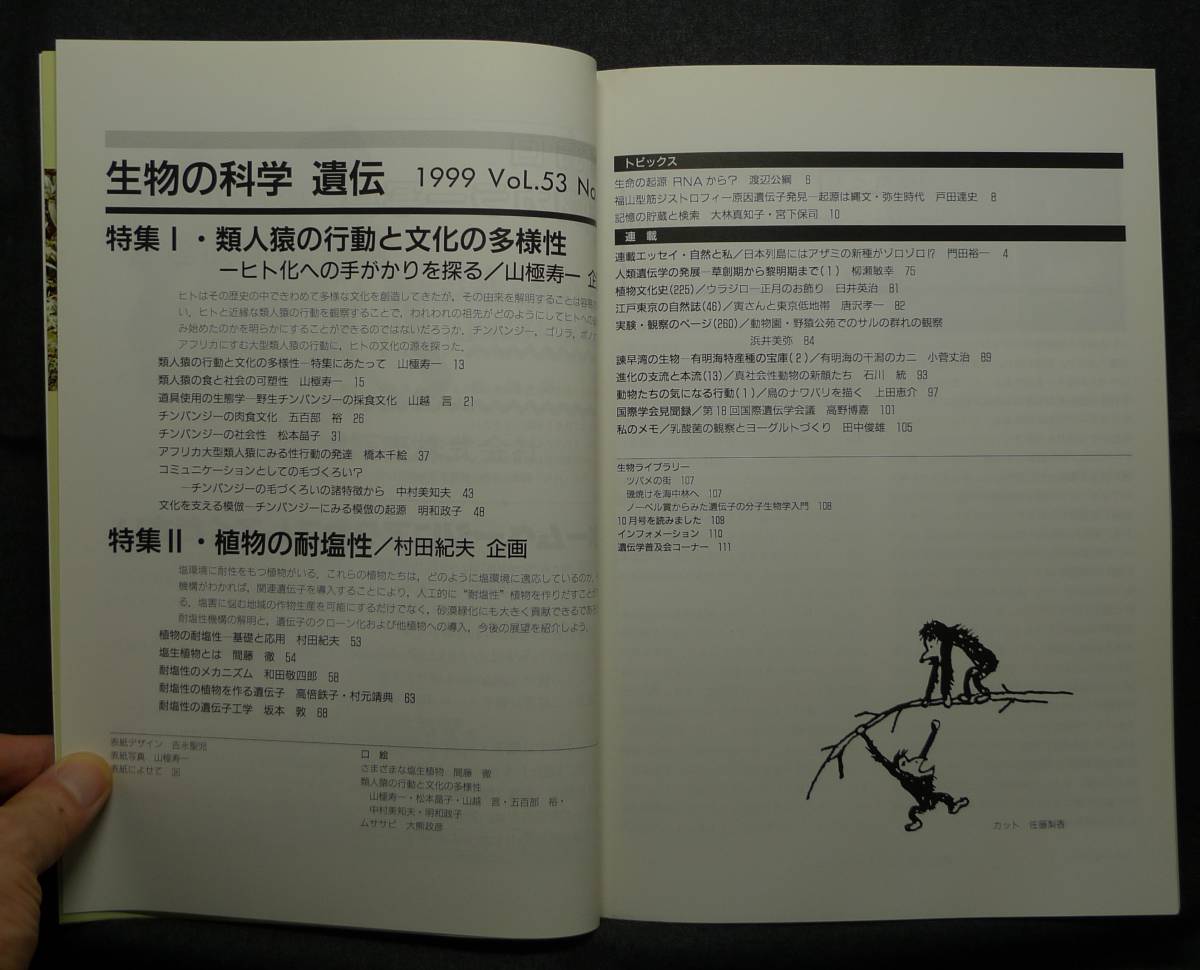 生物の科学 遺伝 1999 VoL.53 No
特集Ⅰ・類人猿の行動と文化の多様性
―ヒト化への手がかりを探る/山極寿一 企
ヒトはその歴史の中できわめて多様な文化を創造してきたが,その由来を解明することは容易
い.ヒトと近縁な類人猿の行動を観察することで,われわれの祖先がどのようにしてヒトへの
み始めたのかを明らかにすることができるのではないだろうか.チンパンジー,ゴリラ,ボノ
アフリカにすむ大型類人猿の行動に,ヒトの文化の源を探った.
類人猿の行動と文化の多様性―特集にあたって 山極寿一 13
類人猿の食と社会の可塑性 山極寿一 15
道具使用の生態学―野生チンパンジーの採食文化 山越 言 21
チンパンジーの肉食文化 五百部 裕 26
チンパンジーの社会性 松本晶子 31
アフリカ大型類人猿にみる性行動の発達 橋本千絵 37
コミュニケーションとしての毛づくろい?
―チンパンジーの毛づくろいの諸特徴から 中村美知夫 43
文化を支える模倣―チンパンジーにみる模倣の起源 明和政子 48
特集Ⅱ・植物の耐塩性/村田紀夫 企画
塩環境に耐性をもつ植物がいる.これらの植物たちは,どのように塩環境に適応しているのか.
機構がわかれば,関連遺伝子を導入することにより,人工的に“耐塩性”植物を作りだすことが
る.塩害に悩む地域の作物生産を可能にするだけでなく,砂漠緑化にも大きく貢献できるであ
耐塩性機構の解明と,遺伝子のクローン化および他植物への導入,今後の展望を紹介しよう.
植物の耐塩性―基礎と応用 村田紀夫 53
塩生植物とは 間藤 徹 54
耐塩性のメカニズム 和田敬四郎 58
耐塩性の植物を作る遺伝子 高倍鉄子・村元靖典 63
耐塩性の遺伝子工学 坂本 敦 68
表紙デザイン 吉永聖児
表紙写真 山極寿一
表紙によせて
口 絵
さまざまな塩生植物 間藤 徹
類人猿の行動と文化の多様性
山極寿一・松本晶子・山越 言・五百部 裕・
中村美知夫・明和政子
ムササビ 大熊政彦
トピックス
生命の起源 RNAから? 渡辺公綱 6
福山型筋ジストロフィー原因遺伝子発見―起源は縄文・弥生時代 戸田達史 8
記憶の貯蔵と検索 大林真知子・宮下保司 10
連 載
連載エッセイ・自然と私/日本列島にはアザミの新種がゾロゾロ!? 門田裕一 4
人類遺伝学の発展―草創期から黎明期まで(1) 柳瀬敏幸 75
植物文化史(225)/ウラジロ―正月のお飾り 臼井英治 81
江戸東京の自然誌(46)/寅さんと東京低地帯 唐沢孝一 82
実験・観察のページ(260)/動物園・野猿公苑でのサルの群れの観察
浜井美弥 84
諫早湾の生物―有明海特産種の宝庫(2)/有明海の干潟のカニ 小菅丈治 89
進化の支流と本流(13)/真社会性動物の新顔たち 石川 統 93
動物たちの気になる行動(1)/鳥のナワバリを描く 上田恵介 97
国際学会見聞録/第18回国際遺伝学会議 高野博嘉 101
私のメモ/乳酸菌の観察とヨーグルトづくり 田中俊雄 105
生物ライブラリー
ツバメの街 107
磯焼けを海中林へ 107
ノーベル賞からみた遺伝子の分子生物学入門 108
10月号を読みました 109
インフォメーション 110
遺伝学普及会コーナー 111
カット 佐藤梨香